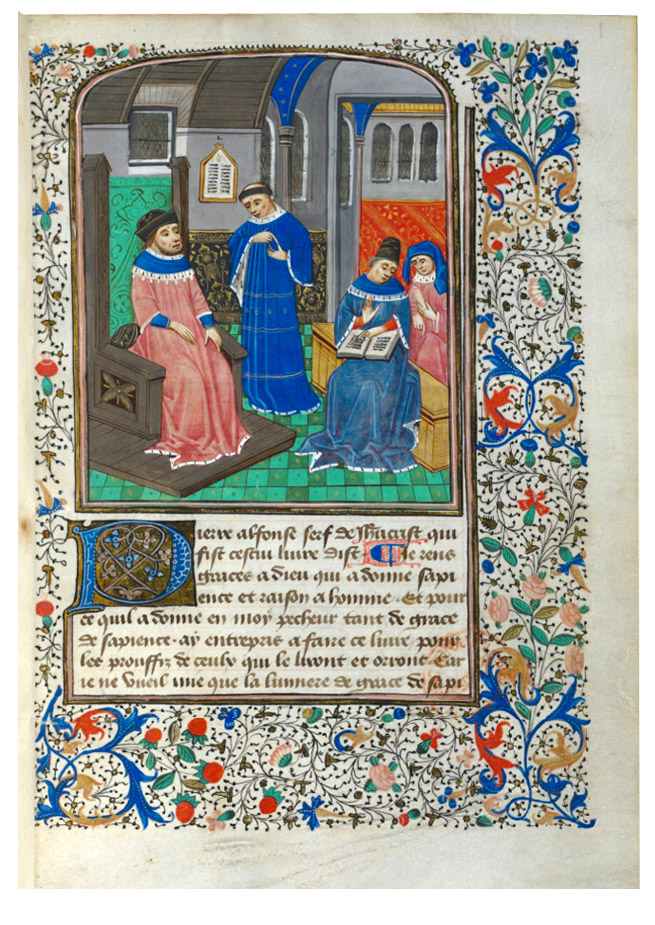 Pierre alfonse serf de Jhucrist qui
fist cestui liure dist Je rens
graces a dieu qui a donne sapi
ence et raison a homme · Et pour
ce quil a donne en moy pecheur tant de grace
de sapience · ay entrepris a faire ce liure pour
les prouffit de ceulx qui le liront et orront · Car
ie ne vueil mie que la lumiere de grace de sapi